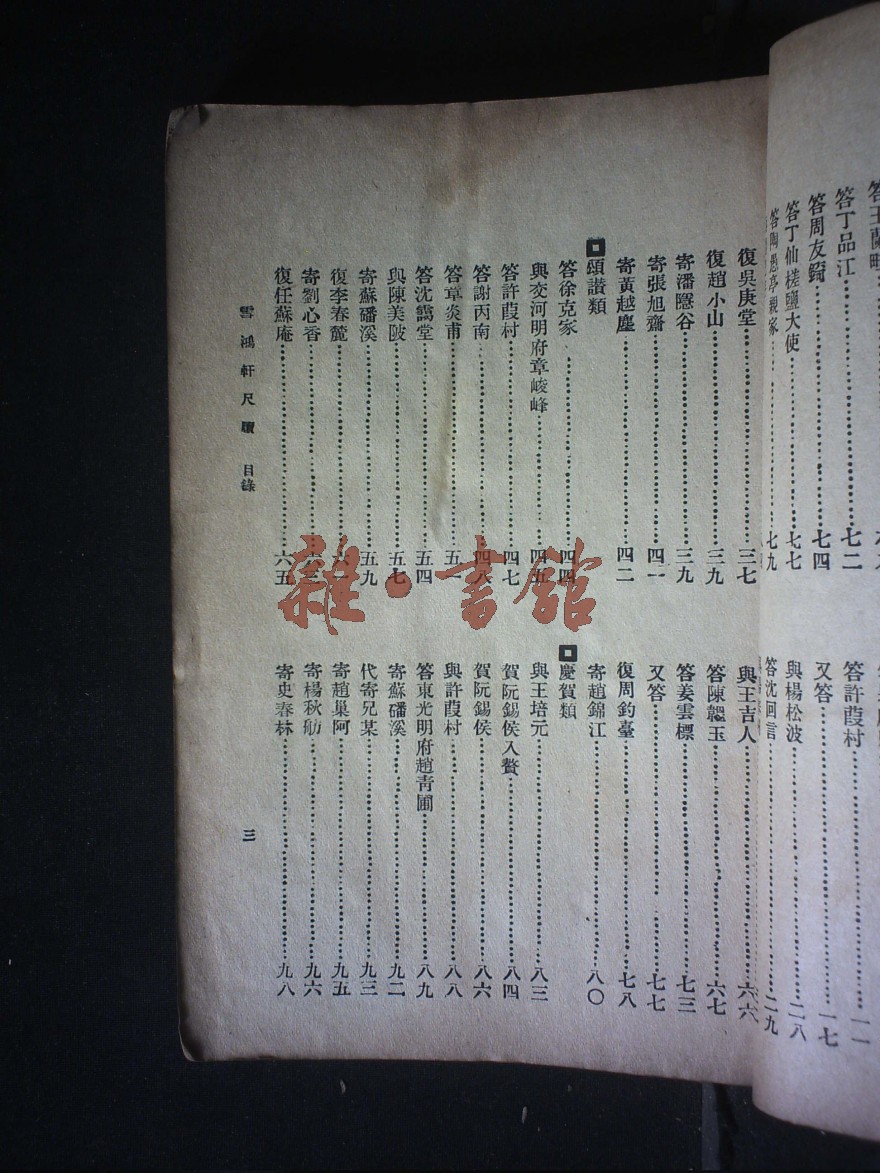 答丁品江……七二
答周友錡……七四
答丁仙槎鹽大使……七七
答陶愚亭親家……七九
答許葭村……一一
又答……一七
與楊松波……二八
答沈回言……二九
復吳庚堂……三七
復趙小山……三九
寄潘隱谷……三九
寄張旭齋……四一
寄黃越塵……四二
頌讚類
答徐克家……四四
與交河明府章峻峰……四五
答許葭村……四七
答謝丙南……四八
答章炎甫……五一
答沈靄堂……五四
與陳美陂……五七
寄蘇磻溪……五九
復李春麓……六一
寄劉心香……六三
復任蘇庵……六五
與王吉人……六六
答陳韞玉……六七
答姜雲標……七三
又答……七七
復周鈞臺……七八
寄趙錦江……八〇
慶賀類
與王培元……八三
賀阮錫侯入贅……八四
賀阮錫侯……八六
與許葭村……八八
答東光明府趙青圃……八九
寄蘇磻溪……九二
代寄兄某……九三
寄趙巢阿……九五
寄楊秋舫……九六
寄史春林……九八
雪鴻軒尺牘 目錄 三
雜·書館